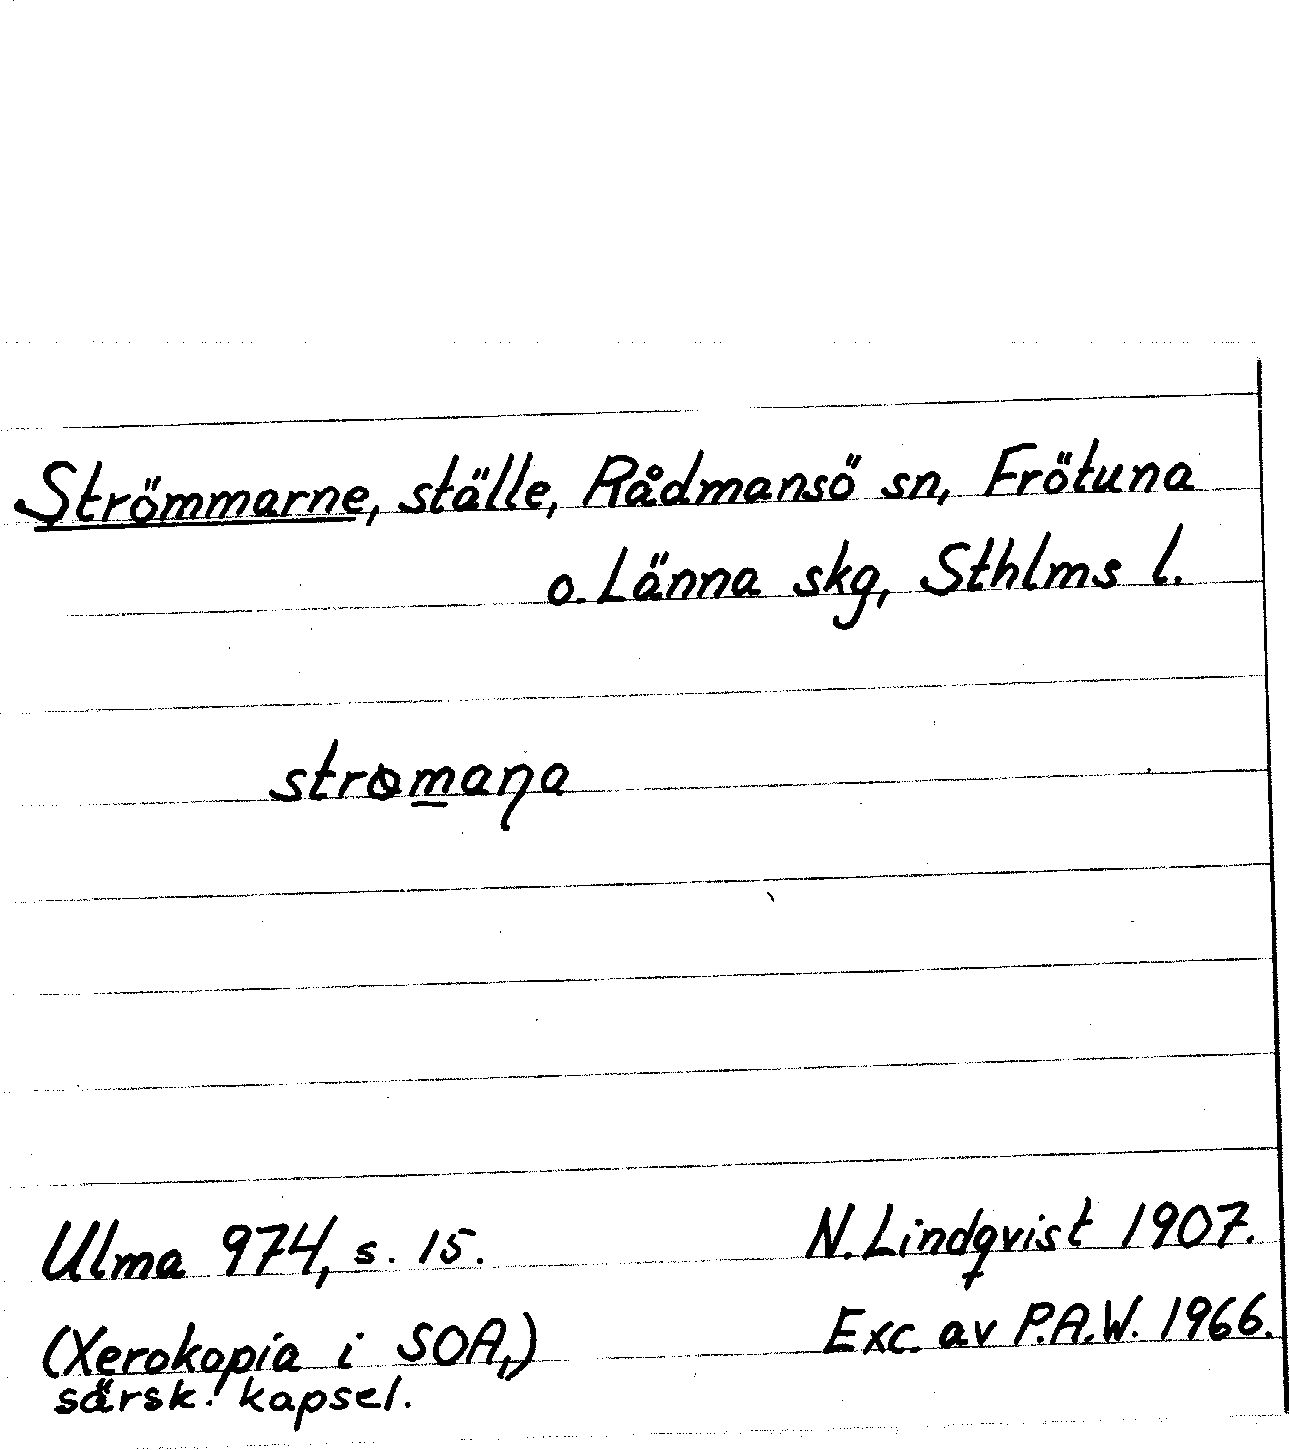 Strömmarne, ställe, Rådmansö sn, Frötuna
o. Länna skg, Sthlms l.
stromaƞa
Ulma 974, s. 15.
N. Lindqvist 1907.
(Xerokopia i SOA,)
Exc. av P.A.W. 1966.
särsk. kapsel.